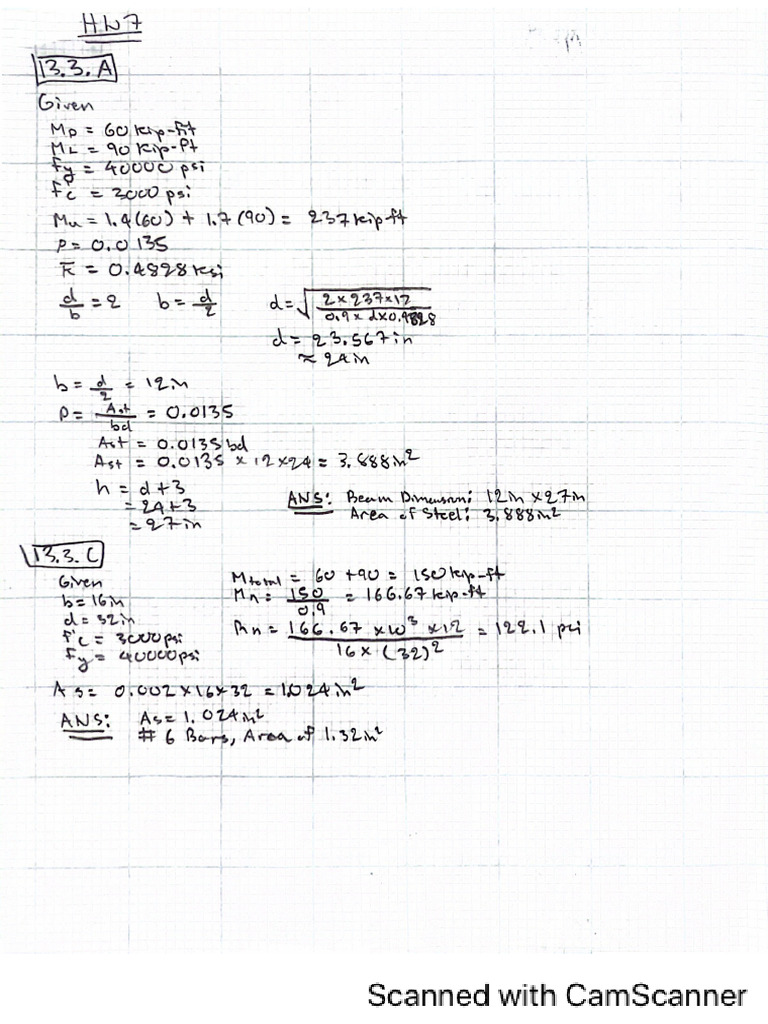 HW7
13.3.A
Given
MD = 60 kip-ft
ML = 90 kip-ft
fy = 40000 psi
f'c = 3000 psi
Mu = 1.4(60) + 1.7(90) = 237 kip ft
P = 0.0135
R̅ = 0.4828 ksi
d/b = 2 b = d/2 d = √(2×237×12 / 0.9×d×0.4828)
d = 23.567 in
≈ 24 in
b = d/2 = 12 in
P = Ast/bd = 0.0135
Ast = 0.0135 bd
Ast = 0.0135 × 12 × 24 = 3.888 in²
h = d+3
= 24+3
= 27 in
ANS: Beam Dimension: 12in × 27in
Area of Steel: 3.888in²
13.3.C
Given
b = 16in
d = 32in
f'c = 3000psi
Fy = 40000psi
Mtotal = 60 + 90 = 150 kip-ft
Mn = 150/0.9 = 166.67 kip-ft
Rn = 166.67 × 10³ × 12 / 16 × (32)² = 122.1 psi
As = 0.002 × 16 × 32 = 1.024 in²
ANS: As = 1.024in²
# 6 Bars, Area of 1.32in²
Scanned with CamScanner